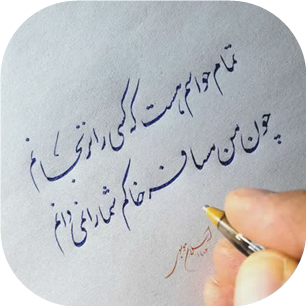 تمام حواسم هست که کسی را نرنجانم
چون من مسافر خاکم شما را نمی دانم